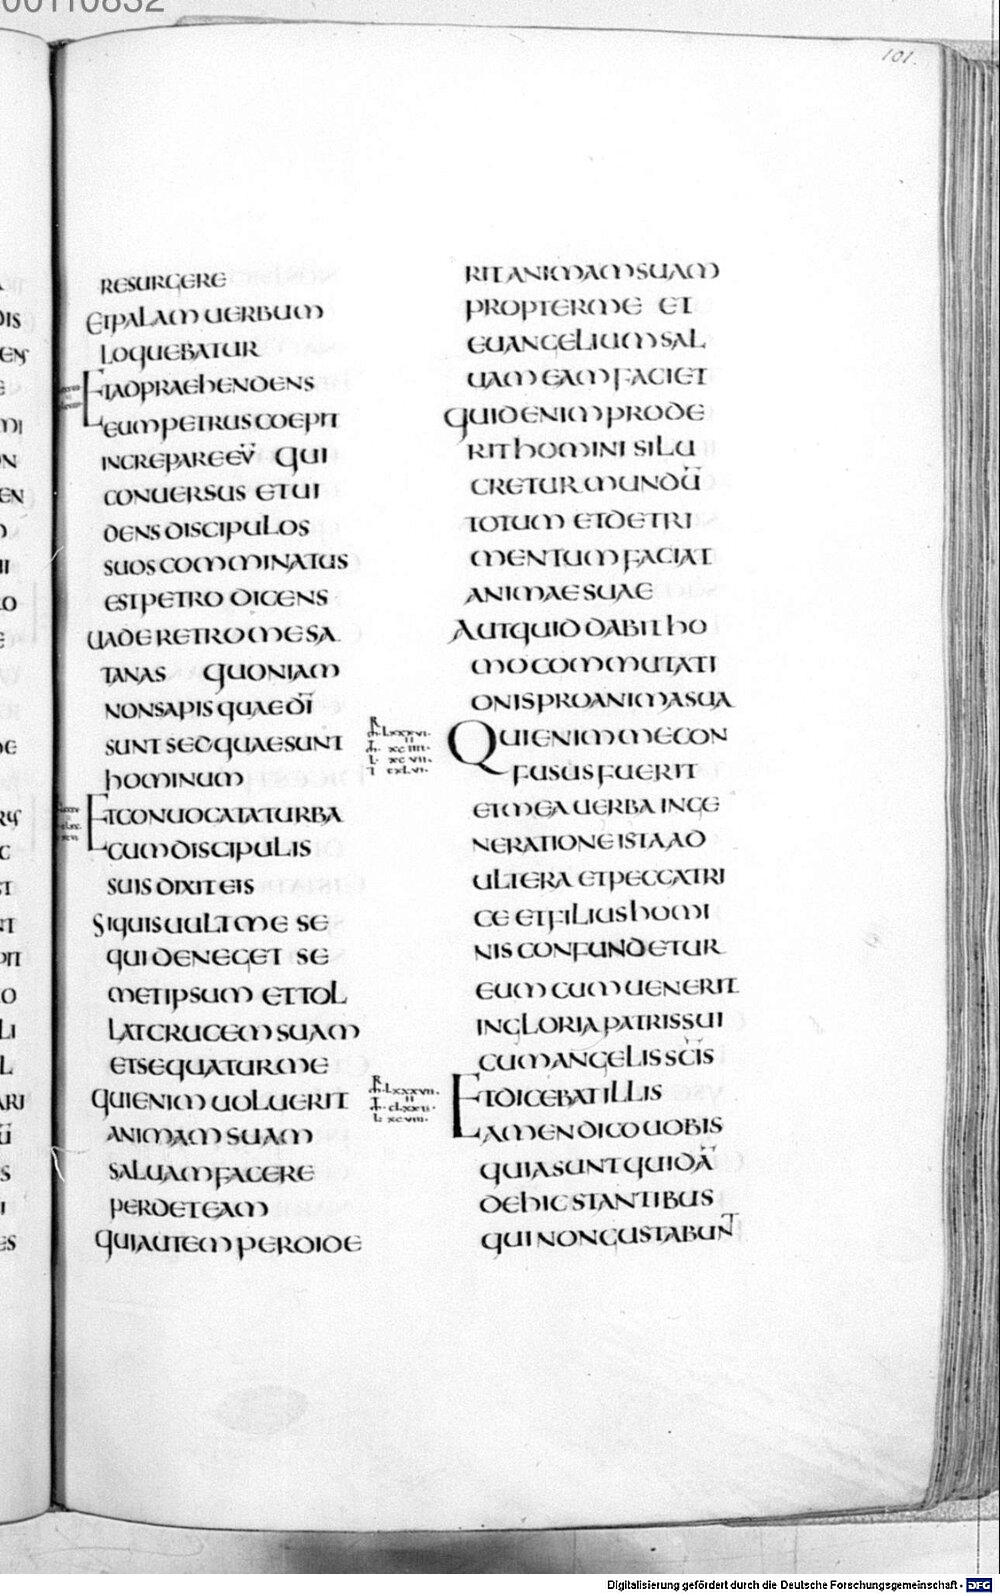 00110832
101.
RESURGERE
ETPALAM UERBUM
LOQUEBATUR
ETADPRAEhENDENS
EUMPETRUS COEPIT
INCREPAREEV̈ QUI
CONUERSUS ET UI
DENS DISCIPULOS
SUOS COMMINATUS
EST PETRO DICENS
UADE RETRO ME SA
TANAS QUONIAM
NONSAPIS QUAE DĪ
SUNT SED QUAESUNT
hOMINUM
ETCONUOCATATURBA
CUMDISCIPULIS
SUIS DIXIT EIS
SIQUIS UULT ME SE
QUI DENEGET SE
METIPSUM ET TOL
LAT CRUCEM SUAM
ETSEQUATUR ME
QUIENIM UOLUERIT
ANIMAM SUAM
SALUAM FACERE
PERDET EAM
QUIAUTEM PERDIDE
RIT ANIMAM SUAM
PROPTER ME ET
EUANGELIUM SAL
UAM EAM FACIET
QUID ENIM PRODE
RIT hOMINI SI LU
CRETUR MUNDŪ
TOTUM ET DETRI
MENTUM FACIAT
ANIMAE SUAE
AUT QUID DABIT hO
MO COMMUTATI
ONIS PROANIMASUA
QUIENIM MECON
FUSUS FUERIT
ET MEA UERBA INGE
NERATIONE ISTA AD
ULTERA ET PECCATRI
CE ET FILIUS hOMI
NIS CONFUNDETUR
EUM CUM UENERIT
INGLORIA PATRIS SUI
CUMANGELIS SC̄IS
ETDICEBAT ILLIS
AMEN DICO UOBIS
QUIA SUNT QUIDĀ
DE hIC STANTIBUS
QUI NON GUSTABUNT
Digitalisierung gefördert durch die Deutsche Forschungsgemeinschaft - DFG